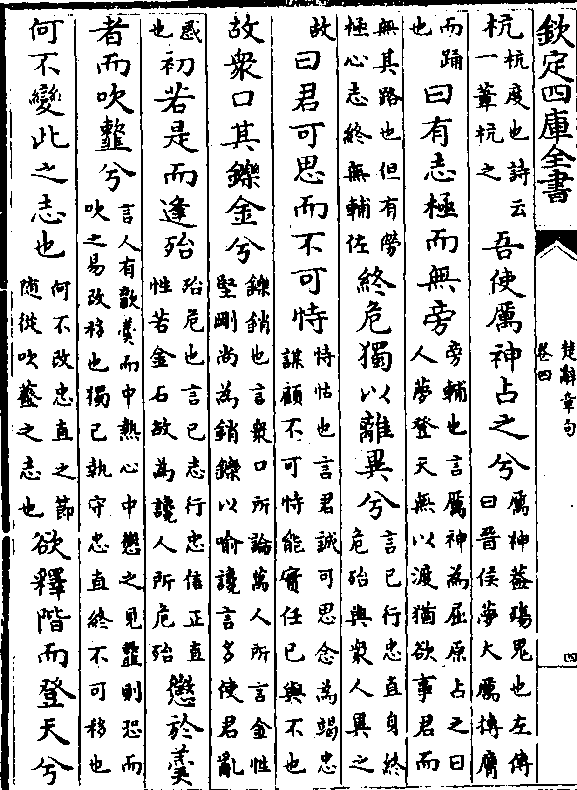 欽定四庫全書
楚辭章句
卷四
四
杭度也詩云
杭一葦杭之
吾使厲神占之兮
厲神蓋殤鬼也左傳
曰晉侯夢大厲搏膺
而踊
也
曰有志極而無旁
旁輔也言厲神為屈原占之曰
人夢登天無以渡猶欲事君而
無其路也但有勞
極心志終無輔佐
終危獨以離異兮
言己行忠直身終
危殆與衆人異之
故
曰君可思而不可恃
恃怙也言君誠可思念為竭忠
謀顧不可恃能實任己與不也
故衆口其鑠金兮
鑠銷也言衆口所論萬人所言金性
堅剛尚為銷鑠以喻讒言多使君亂
惑
也
初若是而逢殆
殆危也言己志行忠信正直
性若金石故為讒人所危殆
懲於羹
者而吹韲兮
言人有歠羹而中熱心中懲之見韲則恐而
吹之易改移也獨己執守忠直終不可移也
何不變此之志也
何不改忠直之節
隨從吹韲之志也
欲釋階而登天兮